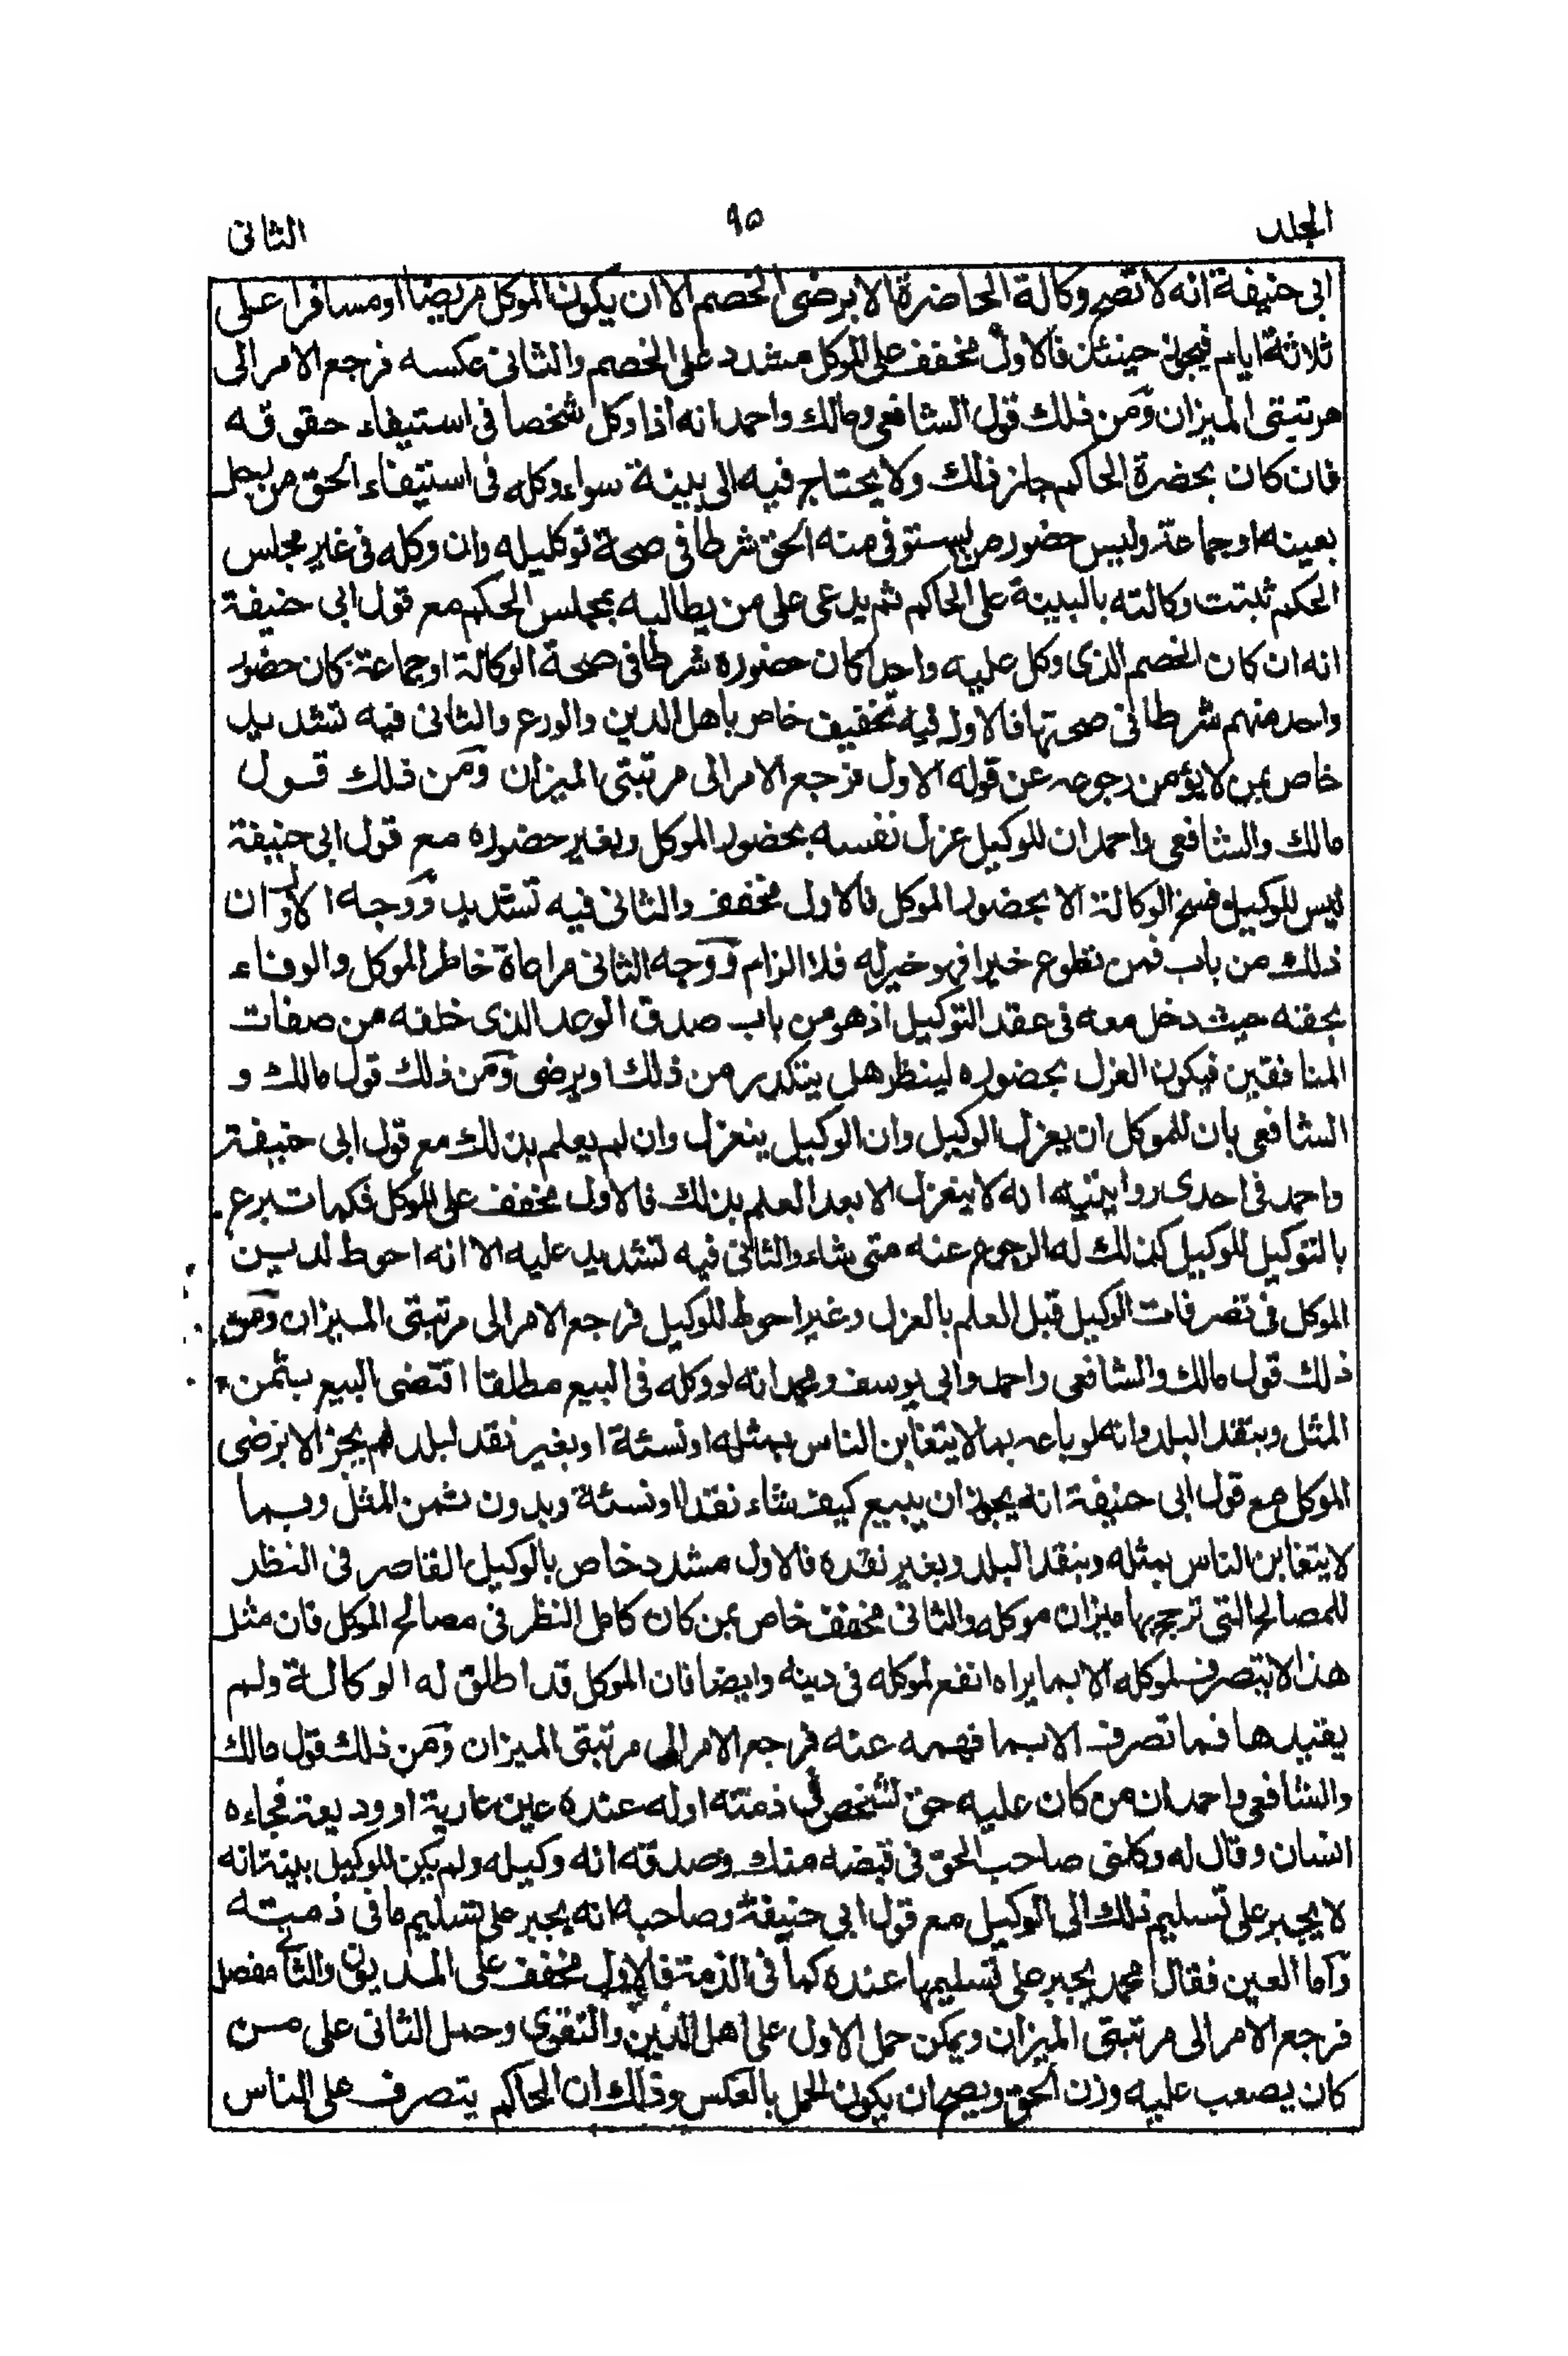 الجلد
٩٥
الثانى
ابى حنيفة انه لا تصح وكالة الحاضرة الا برضى الخصم الا ان يكون الموكل مريضا او مسافرا على
ثلاثة ايام فيجوز حينئذ فالاول مخفف على الموكل مشدد على الخصم والثانى عكسه فرجع الامر الى
مرتبتى الميزان ومن ذلك قول الشافعى ومالك واحمد انه اذا وكل شخصا فى استيفاء حقوقه
فان كان بحضرة الحاكم جاز ذلك ولا يحتاج فيه الى بينة سواء وكله فى استيفاء الحق من رجل
بعينه او جماعة وليس حضور من يستوفى منه الحق شرطا فى صحة توكليله وان وكله فى غير مجلس
الحكم ثبتت وكالته بالبينة على الحاكم ثم يدعى على من يطالبه بمجلس الحكم مع قول ابى حنيفة
انه ان كان الخصم الذى وكل عليه واحدا كان حضوره شرطا فى صحة الوكالة او جماعة كان حضور
واحد منهم شرطا فى صحتها فالاول فيه تخفيف خاص باهل الدين والورع والثانى فيه تشديد
خاص بمن لا يؤمن رجوعه عن قوله الاول فرجع الامر الى مرتبتى الميزان ومن ذلك قول
مالك والشافعى واحمد ان للوكيل عزل نفسه بحضور الموكل وبغير حضوره مع قول ابى حنيفة
ليس للوكيل فسخ الوكالة الا بحضور الموكل فالاول مخفف والثانى فيه تشديد ووجه الاول ان
ذلك من باب فمن تطوع خيرا فهو خير له فلا الزام ووجه الثانى مراعاة خاطر الموكل والوفاء
بحقه حيث دخل معه فى عقد التوكيل اذ هو من باب صدق الوعد الذى خلفه من صفات
المنافقين فيكون العزل بحضوره لينظر هل يتكدر من ذلك او يرضى ومن ذلك قول مالك و
الشافعى بان للموكل ان يعزل الوكيل وان الوكيل ينعزل وان لم يعلم بذلك مع قول ابى حنيفة
واحمد فى احدى روايتيه انه لا ينعزل الا بعد العلم بذلك فالاول مخفف على الموكل فكما تبرع
بالتوكيل للوكيل كذلك له الرجوع عنه متى شاء والثانى فيه تشديد عليه الا انه احوط لدين
الموكل فى تصرفات الوكيل قبل العلم بالعزل وغير احوط للوكيل فرجع الامر الى مرتبتى الميزان ومن
ذلك قول مالك والشافعى واحمد وابى يوسف ومحمد انه لو وكله فى البيع مطلقا اقتضى البيع بثمن
المثل وبنقد البلد وانه لو باعه بما لا يتغابن الناس بمثله او نسئة او بغير نقد لبلد لم يجز الا برضى
الموكل مع قول ابى حنيفة انه يجوز ان يبيع كيف شاء نقدا او نسئة وبدون ثمن المثل وبما
لا يتغابن الناس بمثله وبنقد البلد وبغير نقده فالاول مشدد خاص بالوكيل القاصر فى النظر
للمصالح التى ترجح بها ميزان موكله والثانى مخفف خاص بمن كان كامل النظر فى مصالح الموكل فان مثل
هذا لا يتصرف لموكله الا بما يراه انفع لموكله فى دينه وايضا فان الموكل قد اطلق له الوكالة ولم
يقيدها فما تصرف الا بما فهمه عنه فرجع الامر الى مرتبتى الميزان ومن ذلك قول مالك
والشافعى واحمد ان من كان عليه حق لشخص فى ذمته او له عنده عين عارية او وديعة فجاءه
انسان وقال له وكلنى صاحب الحق فى قبضه منك وصدقه انه وكيله ولم يكن للوكيل بينة انه
لا يجبر على تسليم ذلك الى الوكيل مع قول ابى حنيفة وصاحبه انه يجبر على تسليم ما فى ذمته
واما العين فقال محمد يجبر على تسليمها عنده كما فى الذمة فالاول مخفف على المديون والثانى مفصل
فرجع الامر الى مرتبتى الميزان ويمكن حمل الاول على اهل الدين والتقوى وحمل الثانى على من
كان يصعب عليه وزن الحق ويصح ان يكون الحمل بالعكس وذلك ان الحاكم يتصرف على الناس